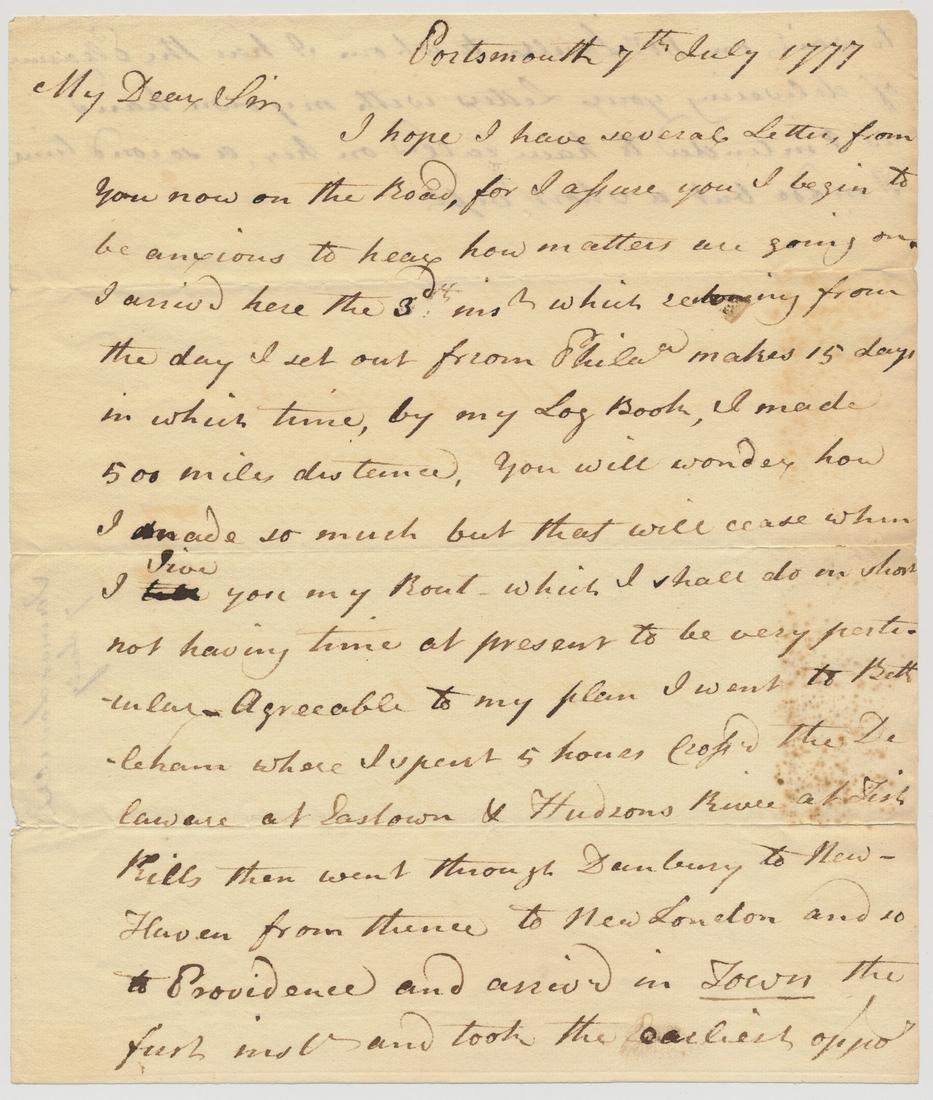 Portsmouth 7th July 1777
My Dear Sir
I hope I have several Letters from
you now on the Road, for I assure you I begin to
be anxious to hear how matters are going on.
I arriv'd here the 3d inst which reckoning from
the day I set out frrom Philaa makes 15 days
in which time, by my Log Book, I made
500 miles distance, You will wonder how
I made so much but that will cease when
I Give you my Rout - which I shall do in short
not having time at present to be very perti-
-cular - Agreeable to my plan I went to Beth
-leham where I spent 5 hours Cross'd the De
laware at Eastown & Hudsons River at Fish
Kills then went through Danbury to New-
Haven from thence to New London and so
to Providence and arriv'd in Town the
furst inst and took the earliest oppo